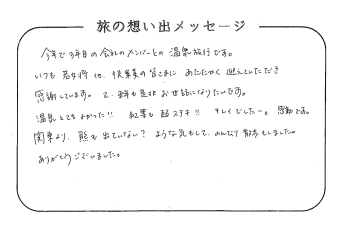 旅の想い出メッセージ
今年で3年目の会社のメンバーとの温泉旅行です。
いつも若女将他、従業員の皆さまにあたたかく迎えていただき
感謝しています。又、来年も是非お世話になりたいです。
温泉とてもよかった!! 紅葉も超ステキ!! キレイでしたー。感動です。
関東より、熊も出ていない?ような気もして、のんびり散歩もしました。
ありがとうございました。